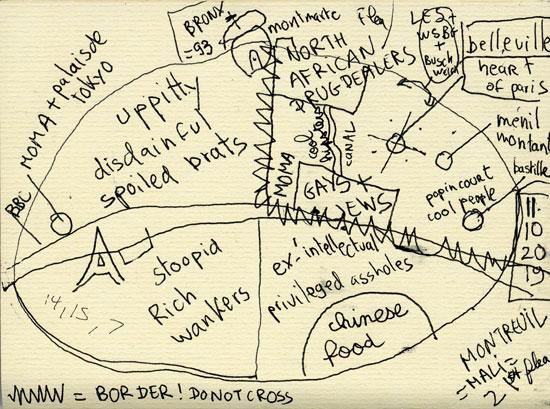 BRONX
=93
montmarte
Flea
LES+
WSBG
+
BUSCH
WICK
belleville
heart
of paris
MOMA + palais de
TOKYO
uppitty
disdainful
spoiled brats
A
NORTH
AFRICAN
DRUG DEALERS
cool
CANAL
MOMA
GAYS +
JEWS
ménil
montant
bastille
popincourt
cool people
BBC
11.
10
20
19
stoopid
Rich
wankers
14, 15, 7
ex-intellectual
privileged assholes
chinese
food
MONTREUIL
=MALI=
flea
= BORDER! DO NOT CROSS